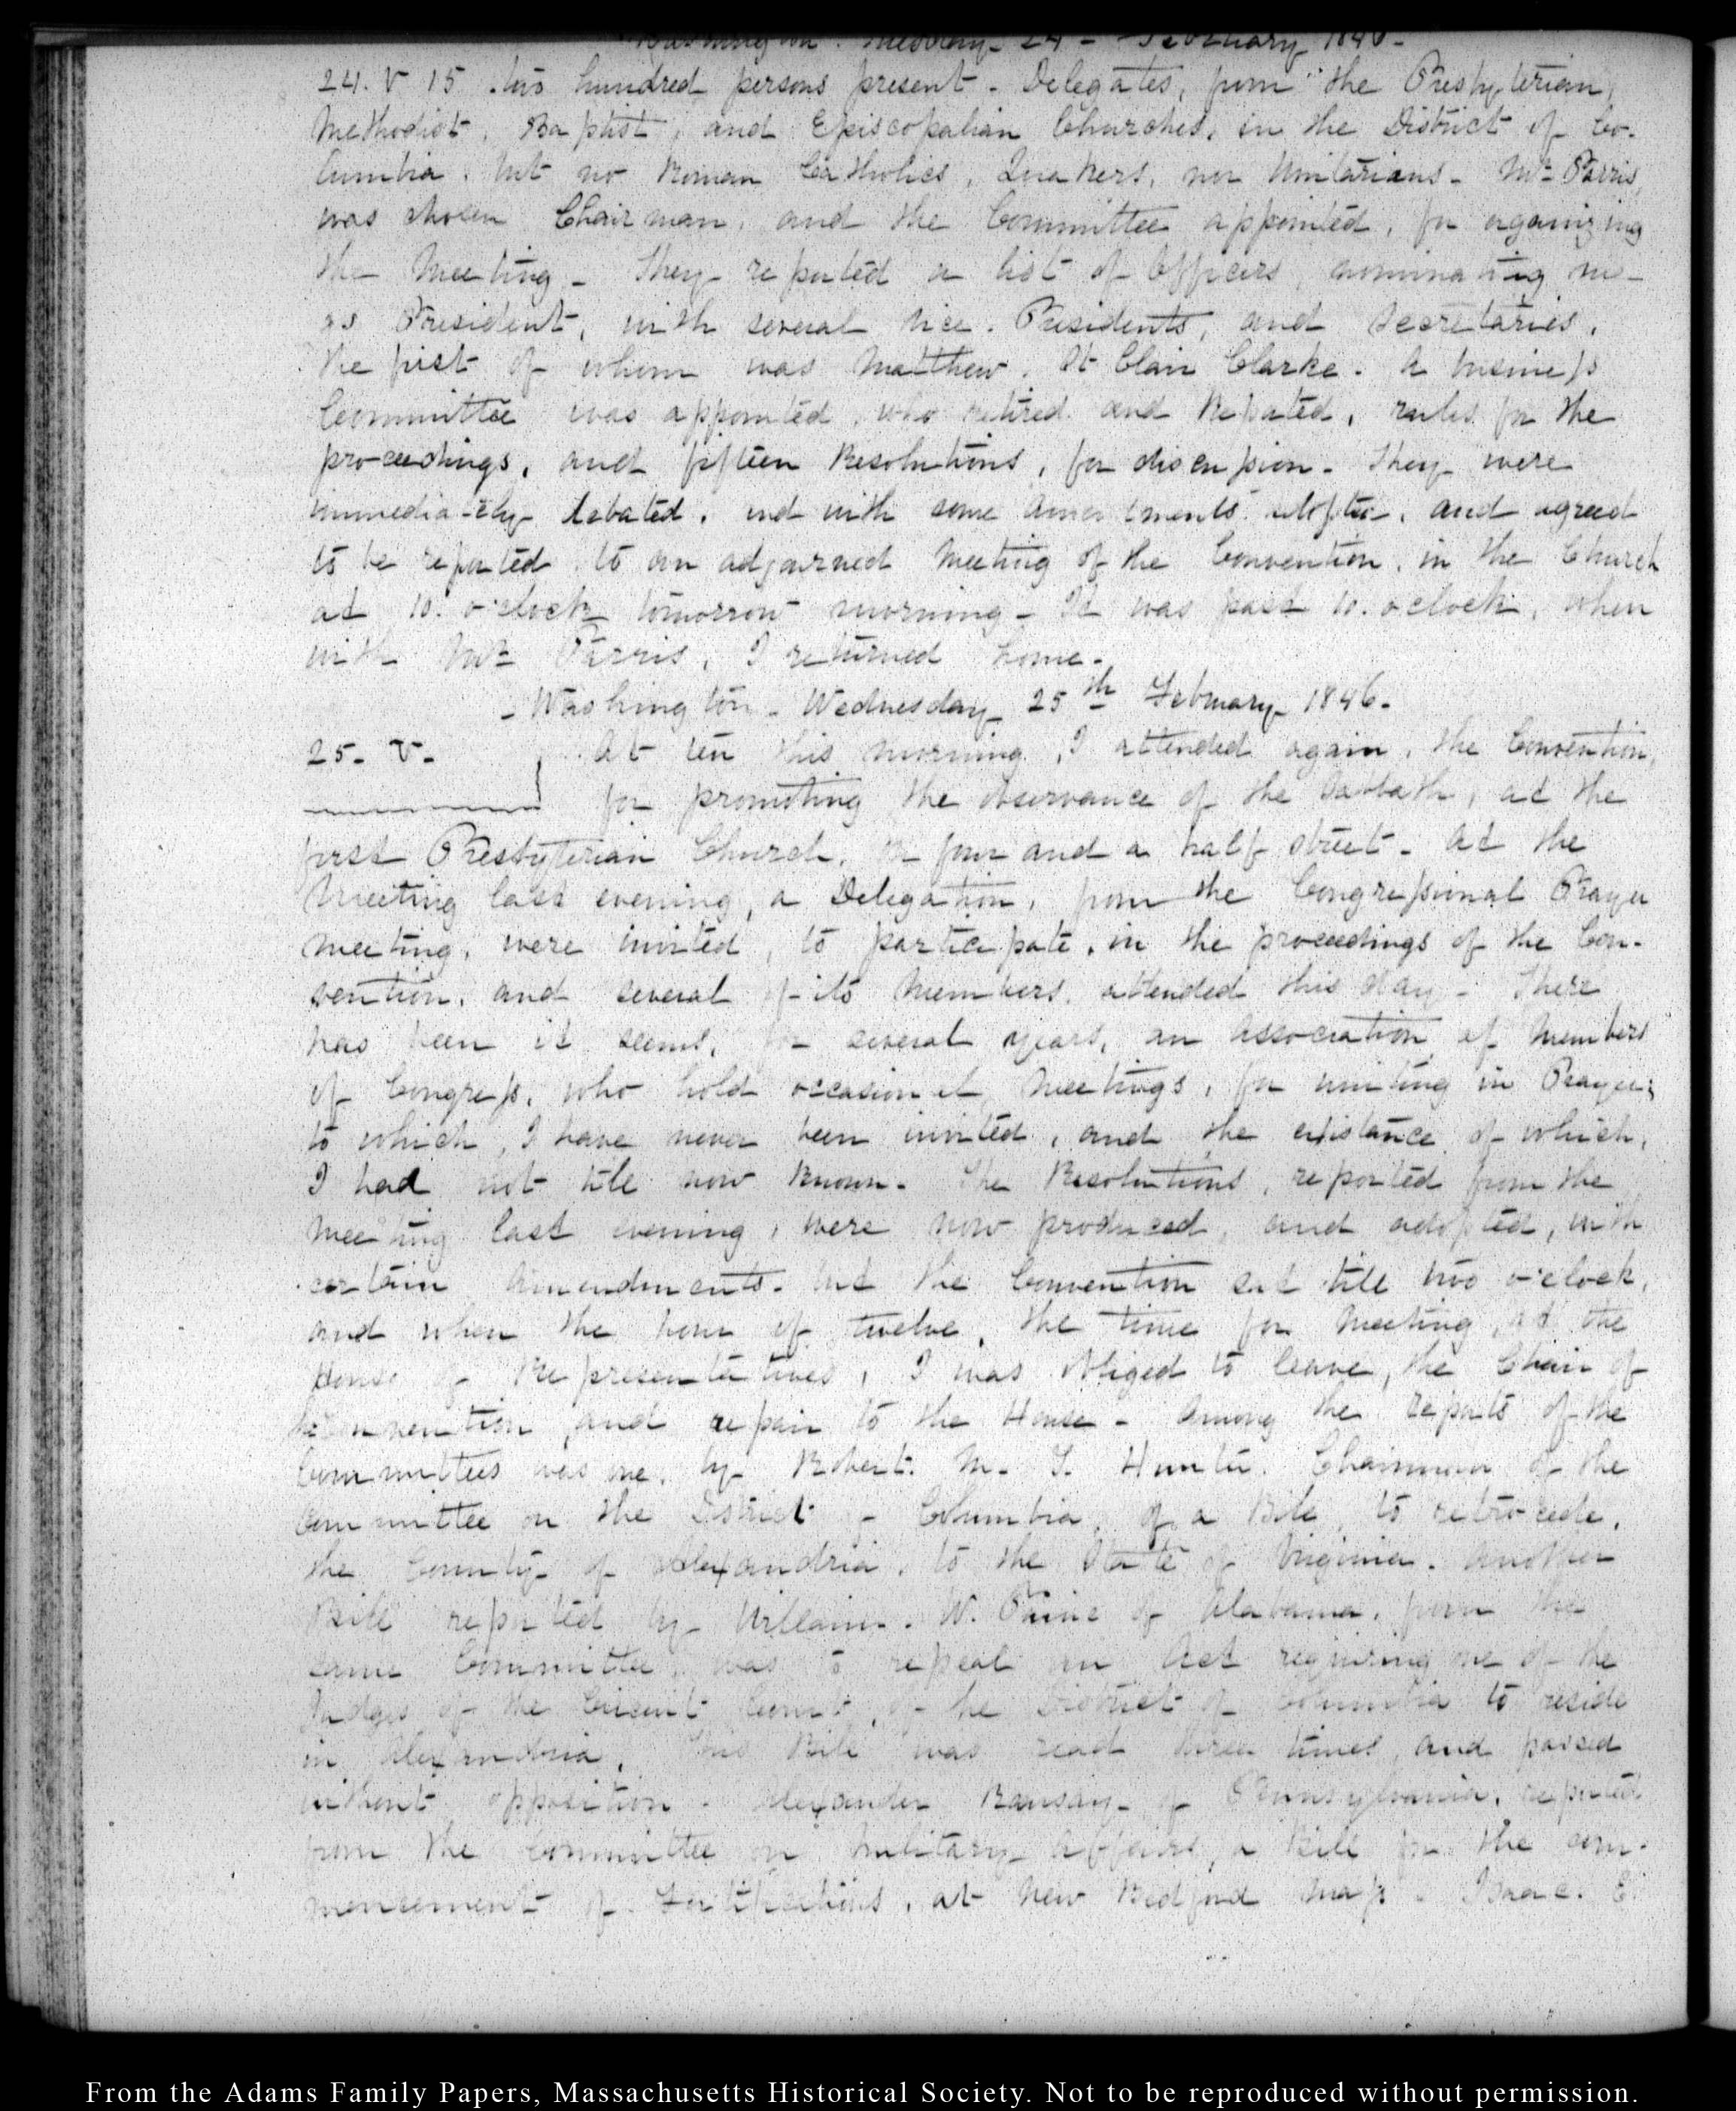 Washington. Tuesday 24 – February 1846.
24. V 15. two hundred persons present – Delegates, from the Presbyterian,
Methodist, Baptist, and Episcopalian Churches, in the District of Co-
lumbia. but no Roman Catholics, Quakers, nor Unitarians – Mr Parris,
was chosen Chairman, and the Committee appointed, for organizing
the Meeting – They reported a list of Officers, nominating me
as President, with several Vice-Presidents, and Secretaries,
the first of whom was Matthew St Clair Clarke. A business
Committee was appointed, who retired and Reported, rules for the
proceedings, and fifteen Resolutions, for discussion – They were
immediately debated, and with some amendments adopted, and agreed
to be reported, to an adjourned Meeting of the Convention, in the Church
at 10. o'clock tomorrow morning – It was past 10. o'clock, when
with Mr Parris, I returned home.
– Washington – Wednesday 25th February 1846.
25. V. At ten this morning, I attended again, the Convention,
for promoting the observance of the Sabbath, at the
first Presbyterian Church, in four and a half street – At the
Meeting last evening, a Delegation, from the Congressional Prayer
meeting, were invited, to participate, in the proceedings of the Con-
vention, and several of its Members, attended this day – There
has been it seems, for several years, an association of Members
of Congress, who hold occasional Meetings, for uniting in Prayer;
to which, I have never been invited, and the existence of which,
I had not till now known. The Resolutions, reported from the
meeting last evening, were now produced, and adopted, with
certain amendments. but the Convention sat till two o'clock,
and when the hour of twelve, the time for Meeting, at the
House of Representatives, I was obliged to leave, the Chair of
the Convention, and repair to the House – Among the reports of the
Committees was one, by Robert. M. T. Hunter. Chairman of the
Committee on the District of Columbia, of a Bill, to retrocede,
the County of Alexandria, to the State of Virginia. Another
Bill reported by William. W. Payne of Alabama, from the
same Committee, was to repeal an Act requiring one of the
Judges of the Circuit Court, of the District of Columbia to reside
in Alexandria. This Bill was read three times, and passed
without opposition. Alexander Ramsay of Pennsylvania, reported
from the Committee on Military Affairs, a Bill for the com-
mencement of Fortifications, at New Bedford Mass. Isaac. E.
From the Adams Family Papers, Massachusetts Historical Society. Not to be reproduced without permission.